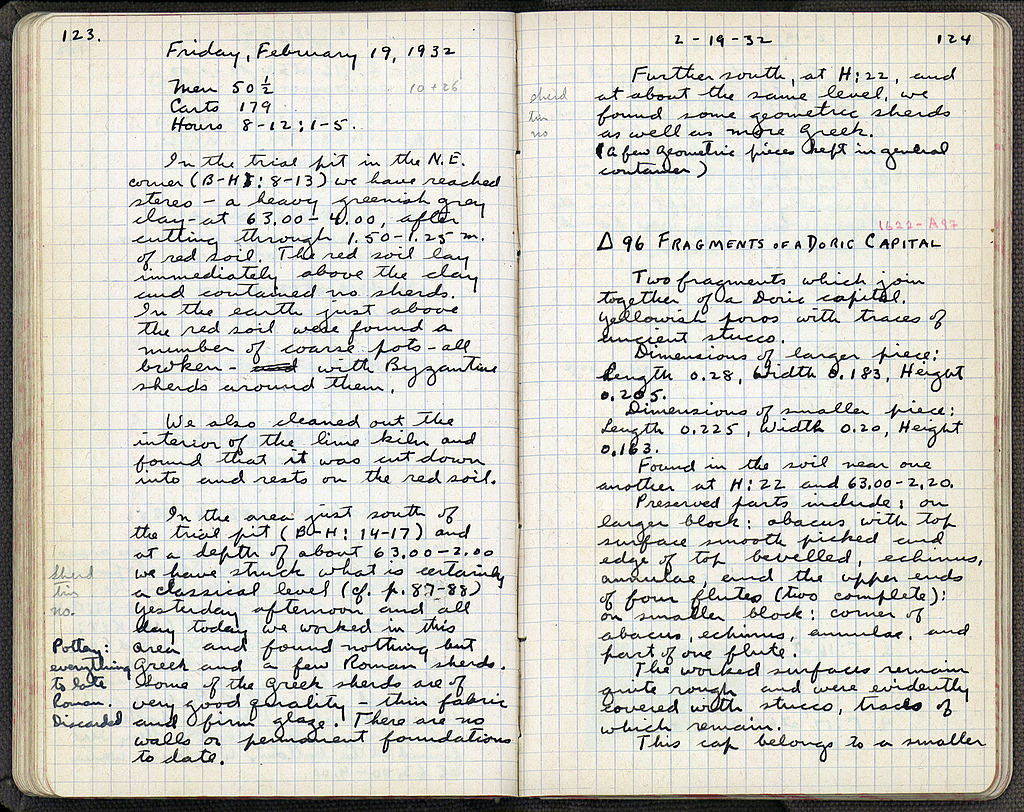 123.
Friday, February 19, 1932
Men 50 ½
10 + 26
Carts 179
Hours 8-12; 1-5.
In the trial pit in the N.E.
corner (B-H: 8-13) we have reached
stereo - a heavy greenish grey
clay - at 63.00 - 4.00, after
cutting through 1.50-1.25 m.
of red soil. The red soil lay
immediately above the clay
and contained no sherds.
In the earth just above
the red soil were found a
number of coarse pots - all
broken - with Byzantine
sherds around them.
We also cleaned out the
interior of the lime kiln and
found that it was cut down
into and rests on the red soil.
In the area just south of
the trial pit (B-H: 14-17) and
at a depth of about 63.00-2.00
we have struck what is certainly
a classical level (cf. p. 87-88)
Yesterday afternoon and all
day today we worked in this
area and found nothing but
Greek and a few Roman sherds.
Some of the Greek sherds are of
very good quality - thin fabric
and firm glaze. There are no
walls or permanent foundations
to date.
sherd
tin
no.
Pottery:
everything
to late
Roman.
Discarded
2-19-32
124
sherd
tin
no
Further south, at H:22, and
at about the same level, we
found some geometric sherds
as well as more Greek.
(A few geometric pieces kept in general
container)
1622-A97
Δ 96 FRAGMENTS OF A DORIC CAPITAL
Two fragments which join
together of a Doric capital.
Yellowish poros with traces of
ancient stucco.
Dimensions of larger piece:
Length 0.28, Width 0.183, Height
0.205.
Dimensions of smaller piece:
Length 0.225, Width 0.20, Height
0.163.
Found in the soil near one
another at H:22 and 63.00-2.20.
Preserved parts include: on
larger block: abacus with top
surface smooth picked and
edge of top bevelled, echinus,
annulae, and the upper ends
of four flutes (two complete);
on smaller block: corner of
abacus, echinus, annulae, and
part of one flute.
The worked surfaces remain
quite rough and were evidently
covered with stucco, traces of
which remain.
This cap belongs to a smaller